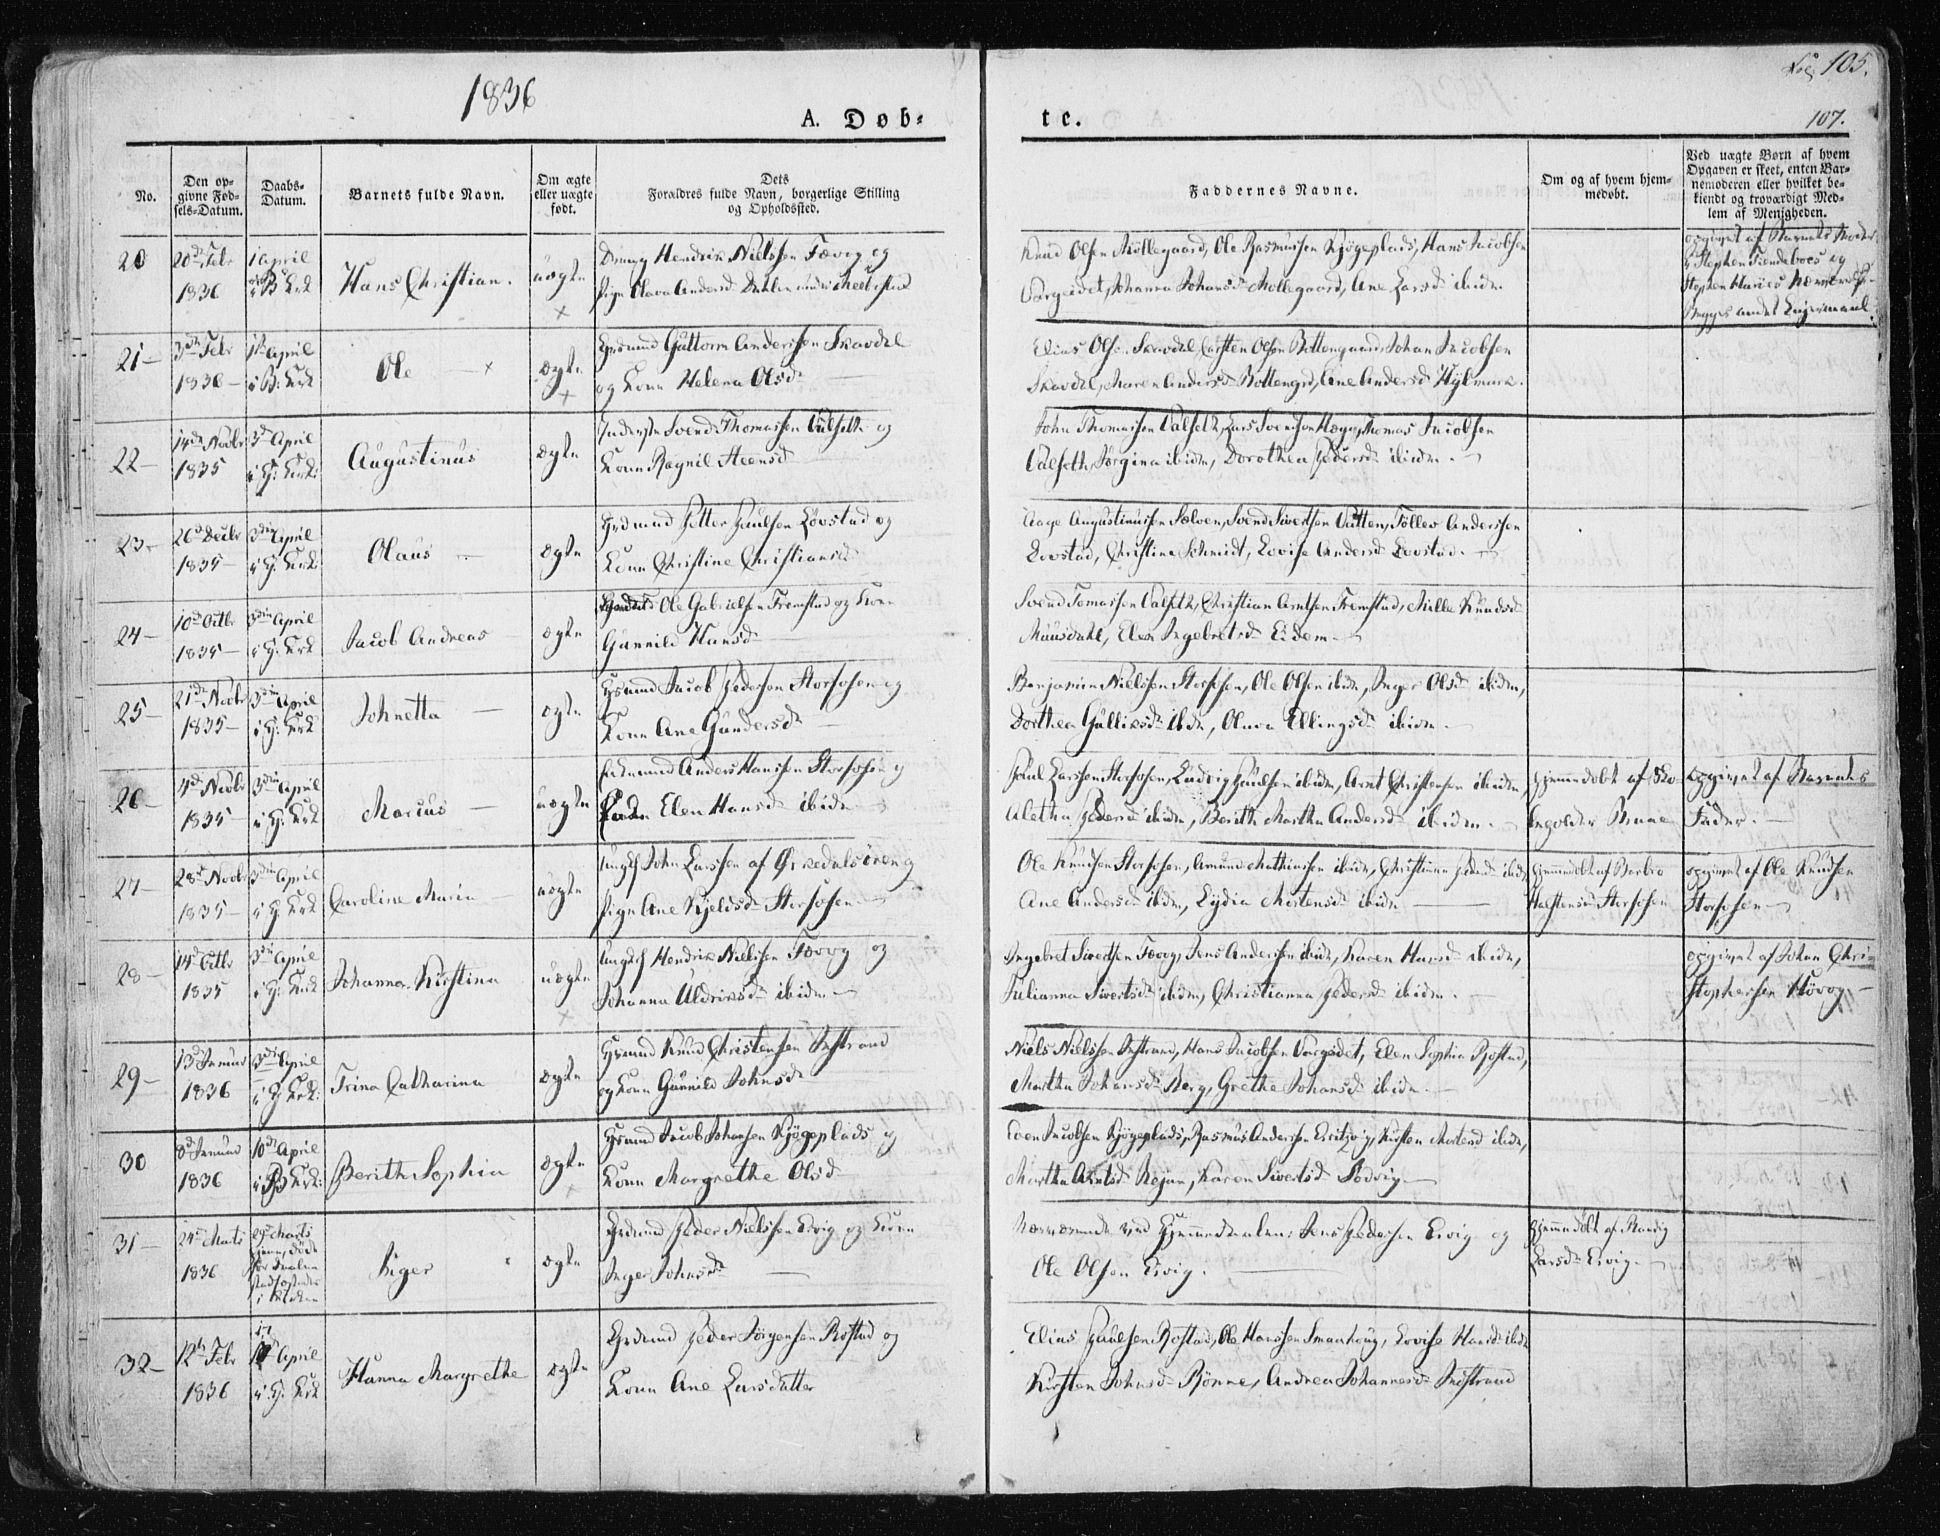 1836
A. Døb-
te.
105.
107.
No.
Den op-
givne Fød-
sels-Datum.
Daabs-
Datum.
Barnets fulde Navn.
Om ægte
eller uægte
født.
Dets
Forældres fulde Navn, borgerlige Stilling
og Opholdssted.
Faddernes Navne.
Om og af hvem hjem-
medøbt.
Ved uægte Børn af hvem
Opgaven er skeet, enten Bar-
nemoderen eller hvilket be-
kiendt og troværdigt Med-
lem af Menigheden.
20
20de Febr
1836
1 April
Hans Christian.
uægte
Hendrik Nielssen Tævog og
Pigen Olava Andersd
Knud Olsen Møllegaard, Ole Rasmussen Kjøgeplads, Hans Jacobsen
Vargeidet, Johanna Johansd Møllegaard, Ane Larsd ibidm
opgivet af Barnets Moder
21 –
3de Febr
1836 –
1ste April
i B: Kirk
Ole –
ægte
Grdmand Guttorm Anderssen Skavdal
og Konn Helena Olsd
Elias Olsen Skavdal, Carsten Olsen Bottengaard, Johan Jacobsen
Skavdal, Maren Andersd Bottengrd, Ane Andersd Hylmark.
22 –
14de Novbr
1835
3die April
i H: Kirk:
Augustinus
ægte
Inderste Svend Thomassen Valseth og
Konn Ragnil Steensd
John Thomassen Valseth, Lars Svendsen Thomas Jacobsen
Valseth, Jørgina ibidm, Dorothea Pedersd ibidm. –
23 –
26de Decbr
1835 –
3die April
i H: Kirk
Olaus –
ægte
Grdmand Petter Paulsen Løvstad og
Konn Christine Christiansd
Aage Augustinussen Selven, Svend Sivertsen Vutten, Tollev Anderssen
Lovstad, Christina Schmidt, Lovise Andersd Lovstad. –
24 –
10de Octbr
1835 –
3die April
i H: Kirk
Jacob Andreas
ægte
Ole Gabrielsen Fremstad og Kon
Gunnild Hansd
Svend Tomassen Valseth, Christian Arntsen Fremstad, Mille Knudsd
Muusdahl, Elen Ingebretsd Eidem –
25 –
21de Novbr
1835 –
3die April
i H: Kirk
Johnetta –
ægte
Grdmand Jacob Pedersen Storfosen og
Konn Ane Gundersd
Benjamin Nielssen Storfosen, Ole Olsen ibidm, Inger Olsd ibidm,
Dorthea Gulliksd ibidm, Olava Ellingsd ibidm –
26 –
4de Novbr
1835 –
3die April
i H: Kirk
Marcus –
uægte
Anders Hanssen Storfosen og
Elen Hansd ibidm
Paul Larssen Storfosen, Ludvig Paulsen ibidm, Arnt Christensen ibidm,
Aletha Pedersd ibidm, Berith Martha Andersd ibidm. –
Hjemmedøbt af Sko-
leholder Brune
opgivet af Barnets
Fader. –
27 –
28de Novbr
1835 –
3die April
i H: Kirk
Caroline Maria –
uægte
Ungkf John Larssen af Ørkedalsøren og
Pigen Ane Kjeldsd Storfosen. –
Ole Knudsen Storfosen, Amund Mathiassen ibidm, Christianna Pedersd ibidm
Ane Andersd ibidm, Lydia Mortensd ibidm –
Hjemmedøbt af Barbro
Halstensd Storfosen
opgivet af Ole Knudsen
Storfosen –
28 –
14de Octbr
1835
3die April
i H: Kirk
Johanna Kirstina
uægte
Ungkf Hendrik Nielssen Tævog og
Johanna Uldriksd ibidm –
Ingebret Sivertsen Tævog, Jens Andersen ibidm, Karen Hansd ibidm,
Julianna Sivertsd ibidm, Christianna Pedersd ibidm. –
opgivet af Johan Chri-
stophersen Høvog –
29 –
13de Januar
1836
3die April
i H: Kirk:
Trina Catharina
ægte
Grdmand Knud Christensen Indstrand
og Konn Gunnild Johnsd
Niels Nielssen Indstrand, Hans Jacobsen Vargeidet, Elen Sophia Rostad,
Martha Johansd Berg, Grethe Johansd ibidm –
30
8de Januar
1836
10de April
i B Kirk:
Berith Sophia
ægte
Grdmand Jacob Johansen Kjøgeplads og
Konn Margrethe Olsd
Even Jacobsen Kjøgeplads, Rasmus Anderssen Kirsten Mortensd ibidm,
Martha Arntsd Karen Sivertsd –
31 –
24de Marts
1836
29de Marts
Inger
ægte
Grdmand Peder Nielssen Ervig og Konn
Inger Johnsd –
Nærværende ved Hjemmedaaben: Jens Pedersen Ervig og
Ole Olsen Ervig. –
Hjemmedøbt af
Larsd Ervig –
32 –
12te Febr
1836
17 April
i H: Kirk
Hanna Margrethe
ægte
Grdmand Peder Jørgensen Rostad og
Konn Ane Larsdatter
Elias Paulsen Rostad, Ole Hanssen Smaahaug, Lovise Hansd ibidm
Kirsten Johnsd Rønne, Andrea Johannesd Indstrand